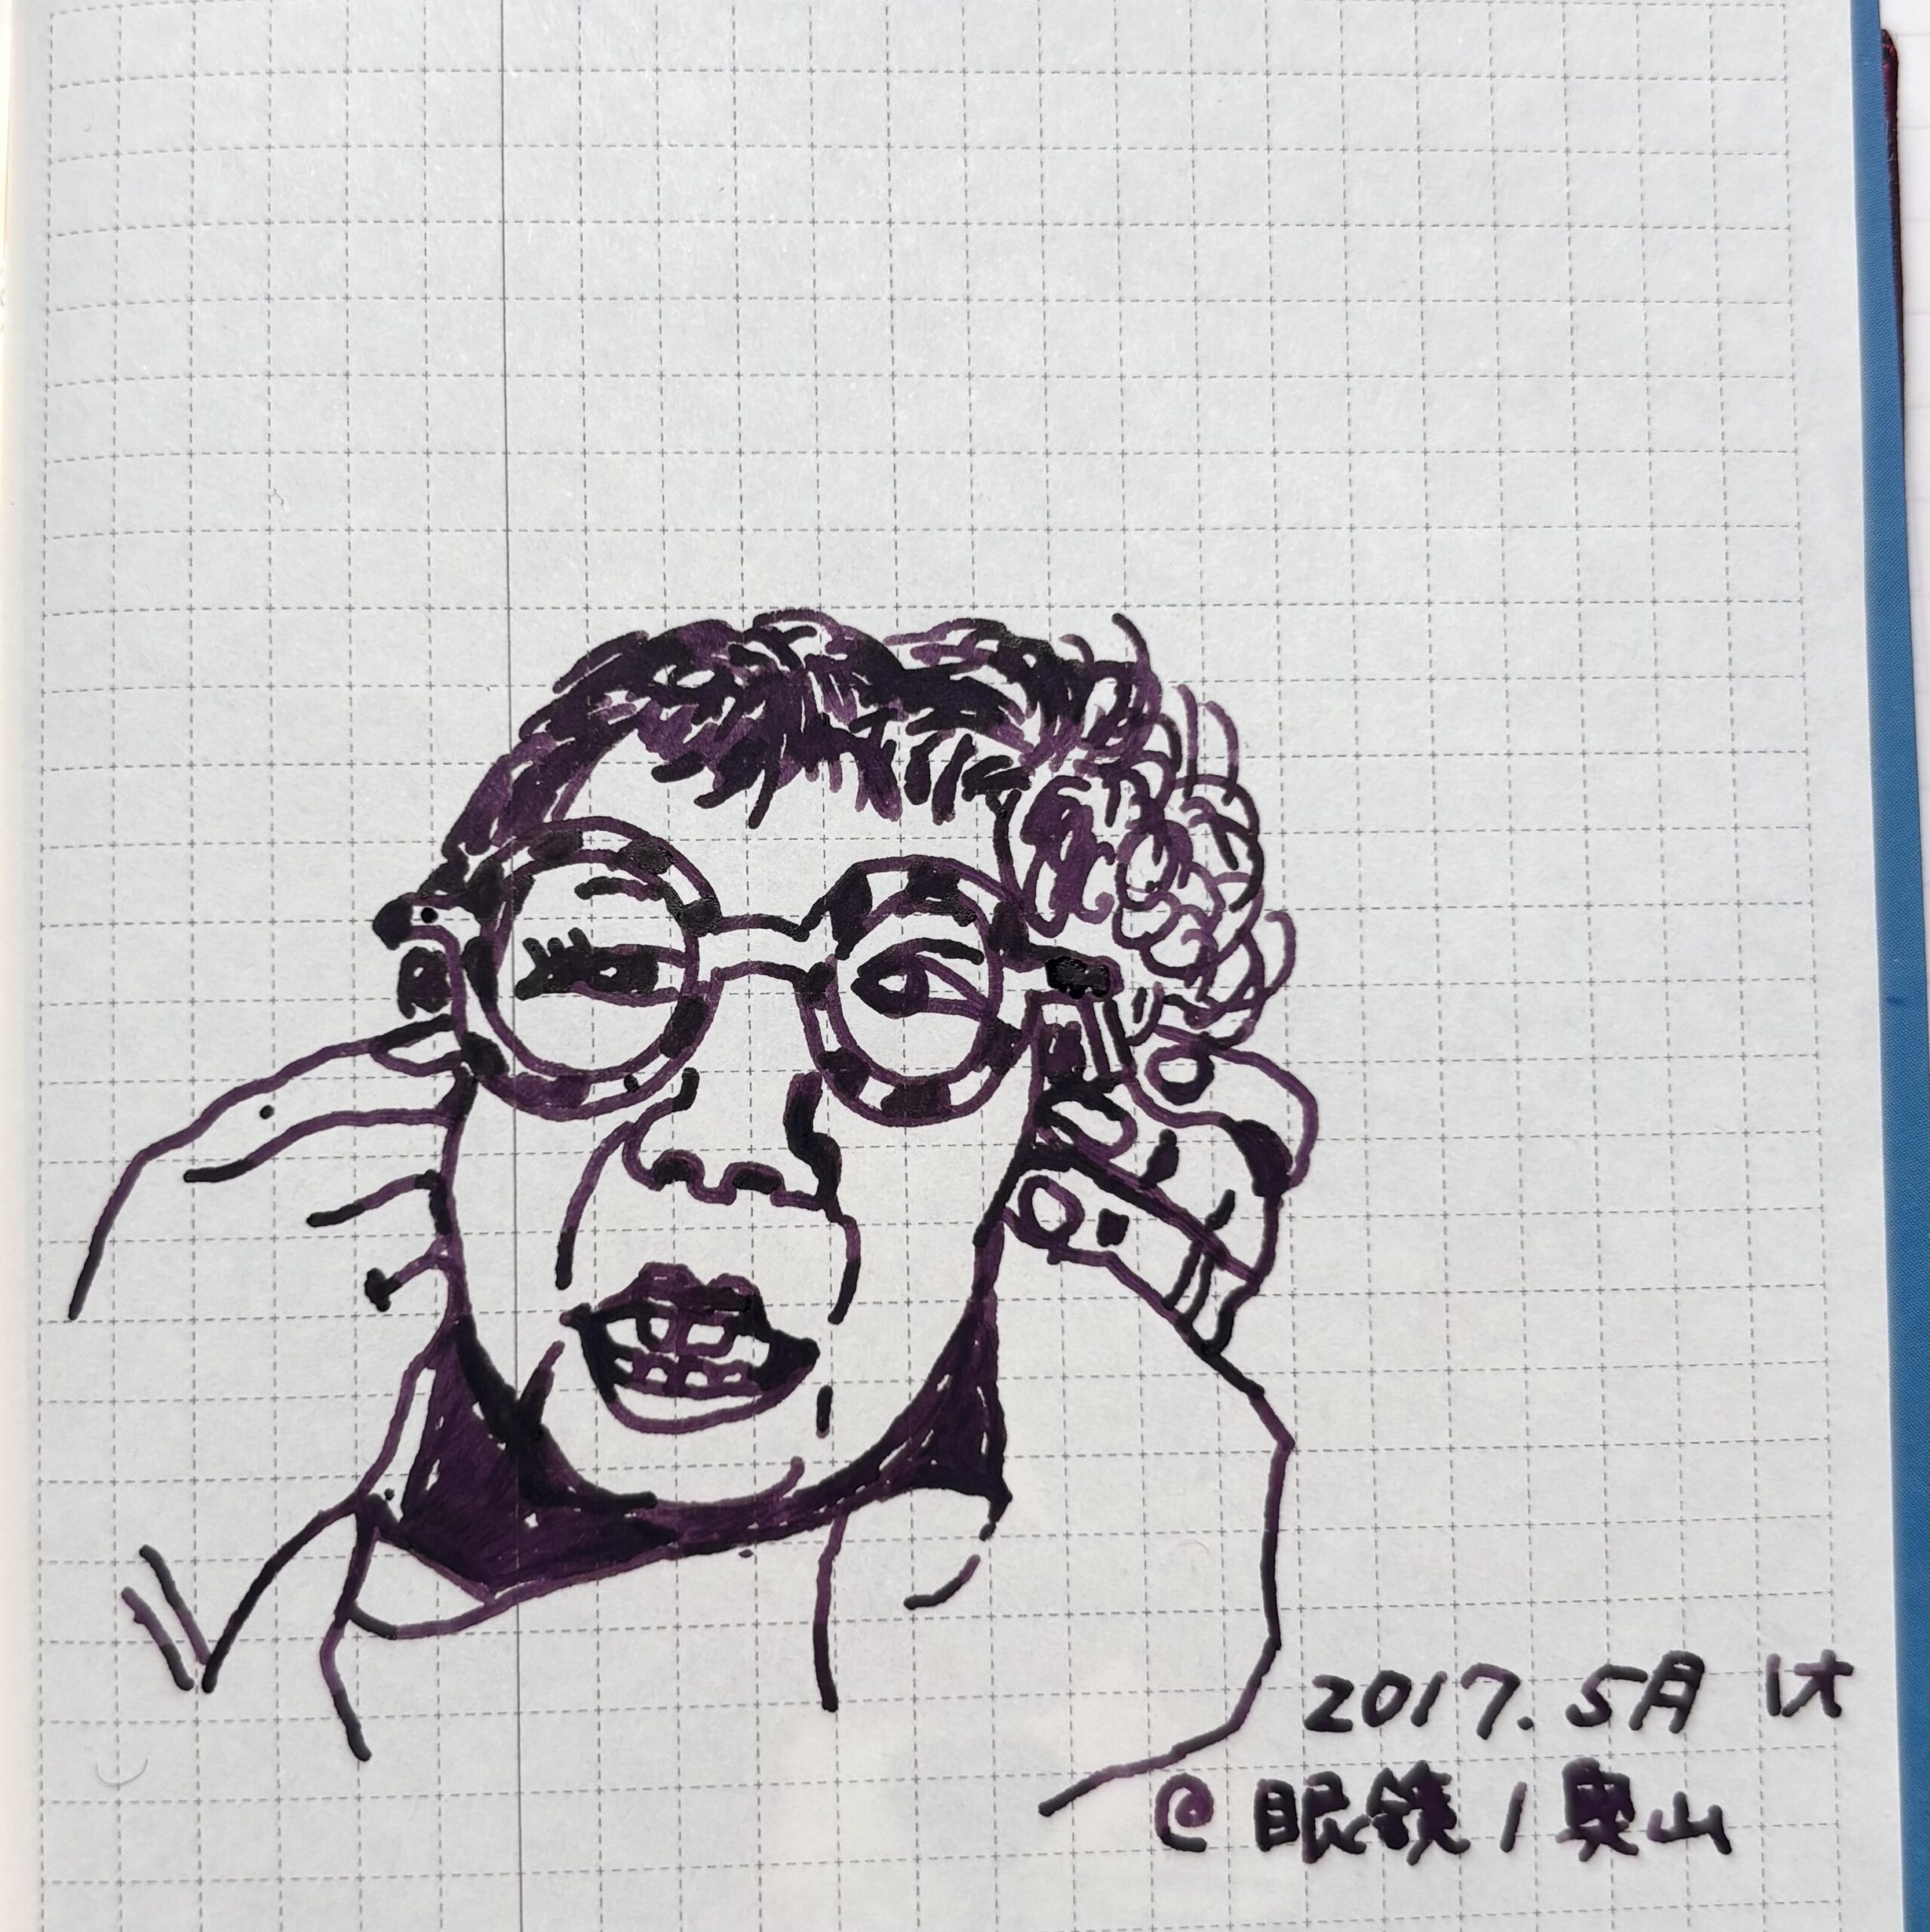 2017.5月 休
@眼鏡ノ奥山